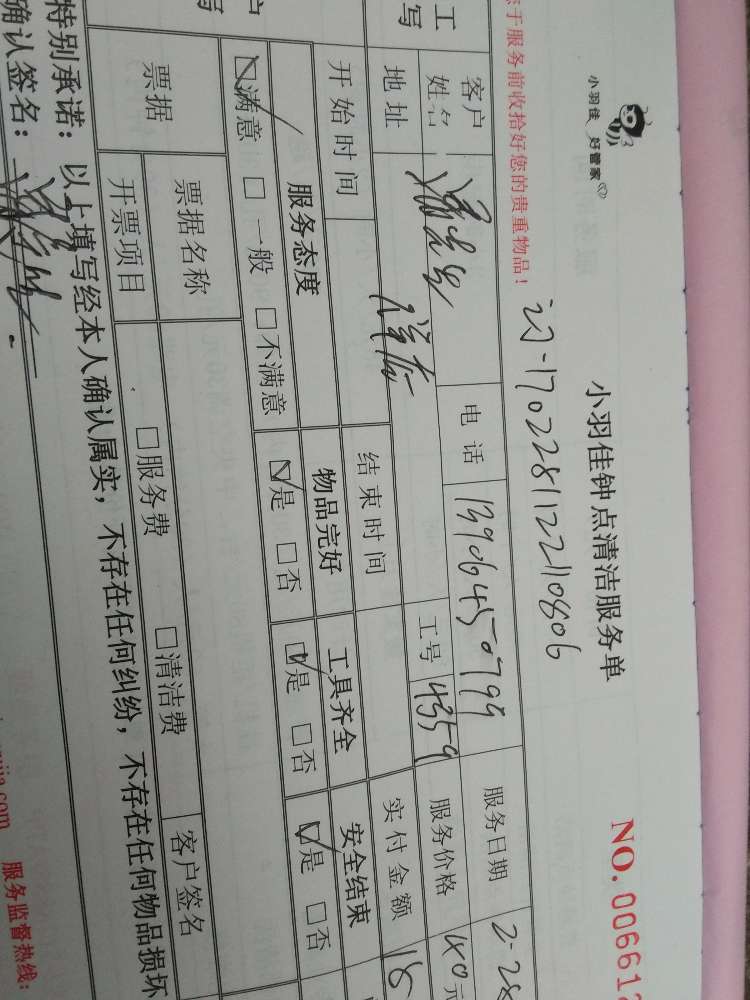 小羽佳 好管家
小羽佳钟点清洁服务单
NO. 006612
订-170228112240806
于服务前收拾好您的贵重物品！
工
写
客户
姓名
电话
13906450799
服务日期
2-28
地址
工号
4359
服务价格
40元
开始时间
结束时间
实付金额
户
写
服务态度
物品完好
工具齐全
安全结束
☑满意 □一般 □不满意
☑是 □否
☑是 □否
☑是 □否
票据
票据名称
开票项目
□服务费 □清洁费
客户签名
特别承诺：以上填写经本人确认属实，不存在任何纠纷，不存在任何物品损坏
确认签名：
jia.com 服务监督热线：